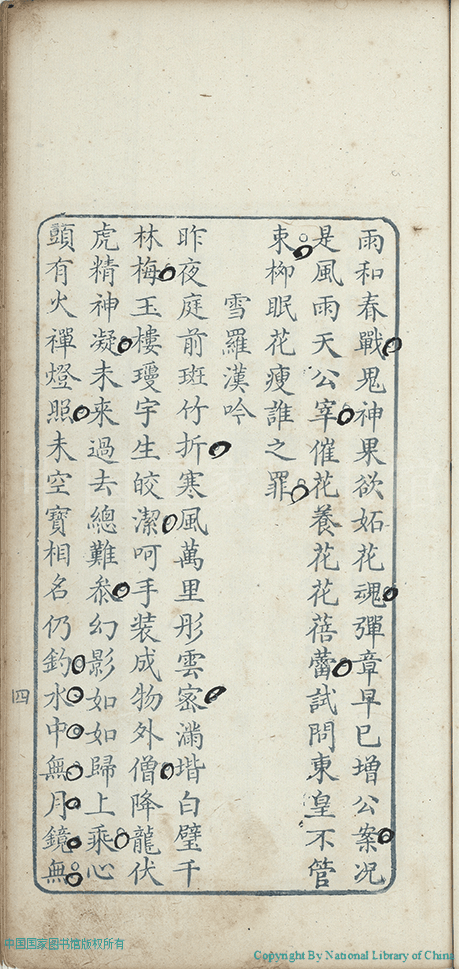 雨和春戰鬼神果欲妬花魂彈章早已增公案况
是風雨天公宰催花養花花蓓蕾試問東皇不管
束柳眠花瘦誰之罪
雪羅漢吟
昨夜庭前斑竹折寒風萬里彤雲密滿堦白璧千
林梅玉樓瓊宇生皎潔呵手装成物外僧降龍伏
虎精神凝未來過去總難叅幻影如如歸上乘心
頭有火禪燈照未空寶相名仍釣水中無月鏡無
四
中国国家图书馆版权所有
Copyright By National Library of China